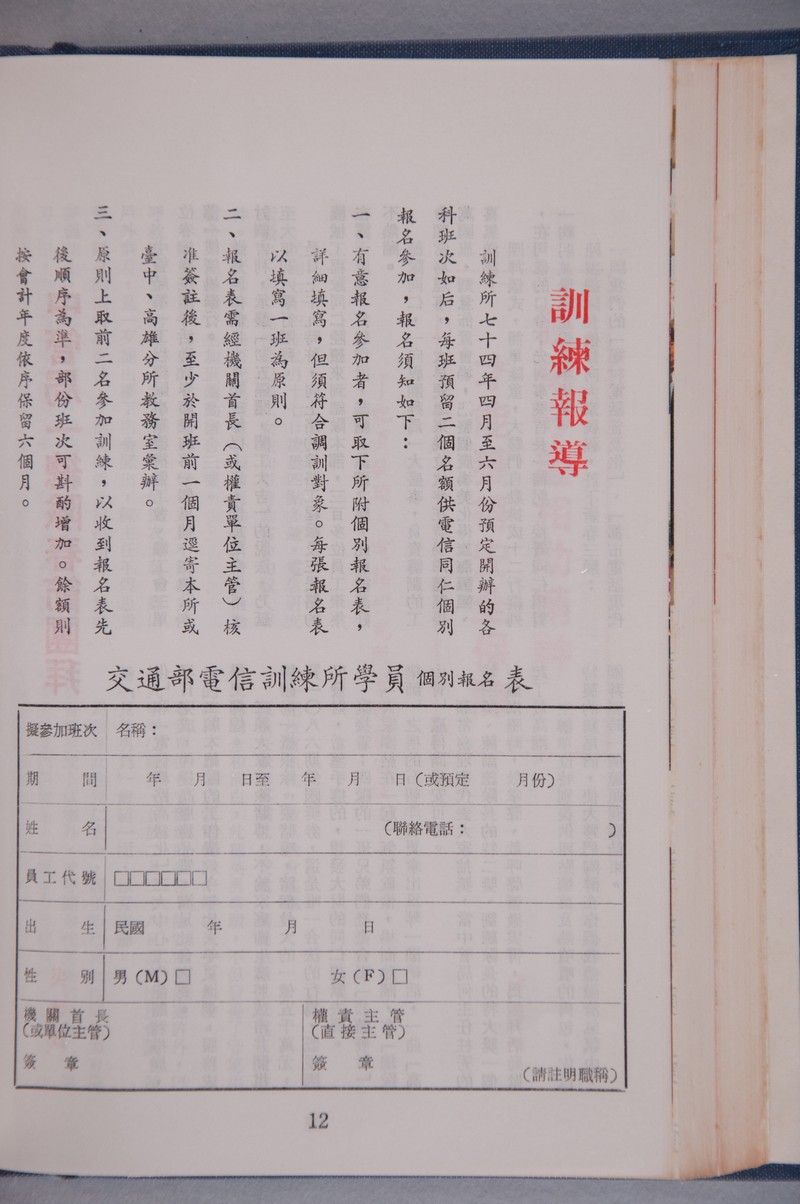 訓練報導
訓練所七十四年四月至六月份預定開辦的各
科班次如后，每班預留二個名額供電信同仁個別
報名參加，報名須知如下：
一、有意報名參加者，可取下所附個別報名表，
詳細填寫，但須符合調訓對象。每張報名表
以填寫一班為原則。
二、報名表需經機關首長（或權責單位主管）核
准簽註後，至少於開班前一個月逕寄本所或
臺中、高雄分所教務室彙辦。
三、原則上取前二名參加訓練，以收到報名表先
後順序為準，部份班次可斟酌增加。餘額則
按會計年度依序保留六個月。
交通部電信訓練所學員個別報名表
擬參加班次 名稱：
期間 年 月 日至 年 月 日（或預定 月份）
姓名 （聯絡電話： ）
員工代號 □□□□□□
出生 民國 年 月 日
性別 男（M）□ 女（F）□
機關首長 權責主管
（或單位主管） （直接主管）
簽章 簽章 （請註明職稱）
12